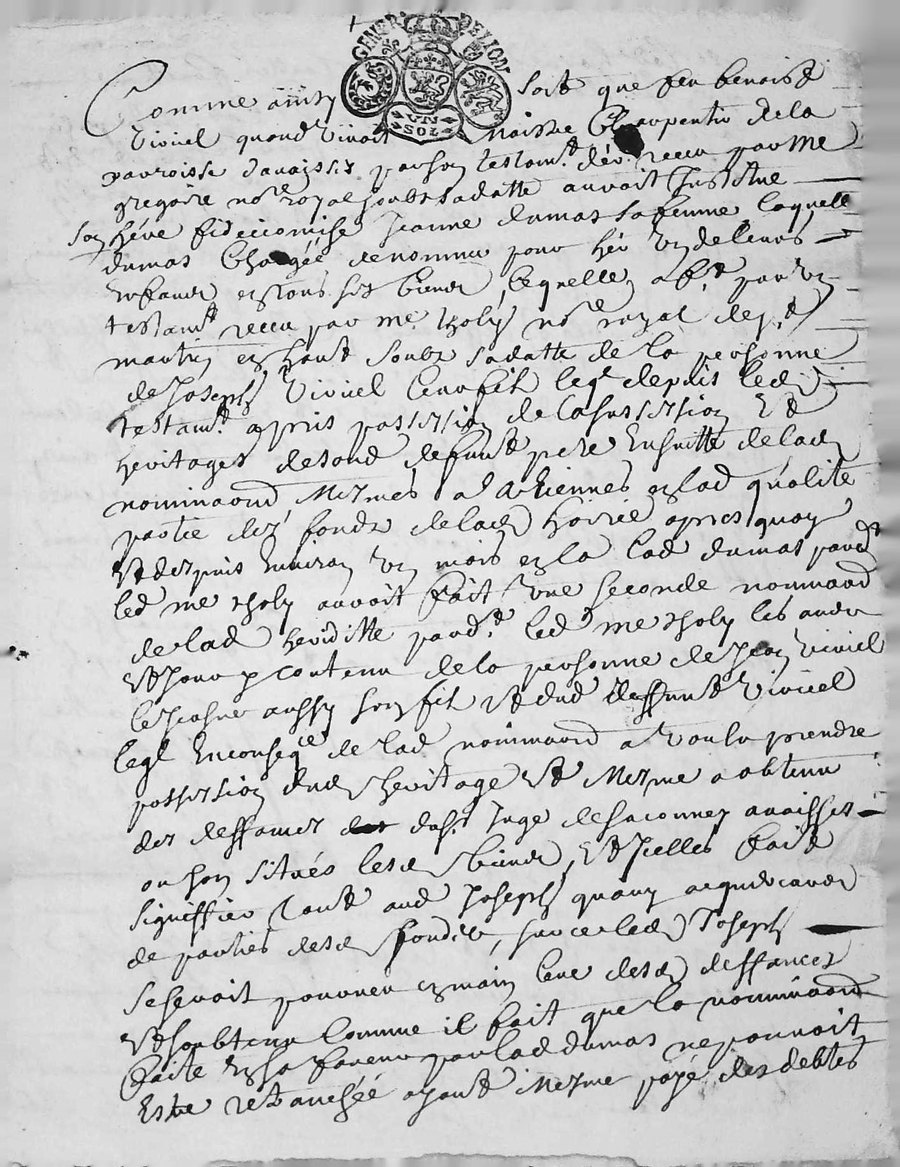 GENER DE LION
UN SOL
Comme ainsy soit que feu benoist
viviel quand vivoit maistre charpentier de la
parroisse d'avaisses par son testam.t dé recu par Me
gregoire no.re royal soubz sa datte auroit institue
son hére fideicomise Jeanne dumas sa femme laquelle
dumas chargée de nommer pour hér un de leurs
enfans en tous ses biens, lequelle a f.t par un
testam.t receu par me tholy no.re royal de s.t
martin en haut soubz sa datte de la personne
de Joseph viviel leur fil leq.l depuis led
testam.t a pris possession de la sussession et
héritages de sond defunt pere ensuitte de lad
nominaon, mesmes a en lad qualité
partie des fondz de lad hoirie apres quoy
et despuis environ un mois en la lad dumas pard.t
led me tholy auroit fait une seconde nominaon
de lad heriditte pard.t led me tholy les an
et jour y contenu de la personne de Jean viviel
le jeosne aussy son fil et dud deffunt viviel
leq.l en conseq.ce de lad nominaon a voulu prendre
possession dud heritage et mesme a obtenu
des deffances du s.r Juge de saconney avaisses
ou son situés lesd biens, et icelles fait
signiffier tant aud Joseph quaux acquereurs
de parties desd fondz, sur ce led Joseph
se seroit pourveu en main leve desd deffances
et soubtenu comme il fait que la nominaon
faite en sa faveur par lad dumas ne pouvoit
estre retranchée ayant mesme payé des debtes